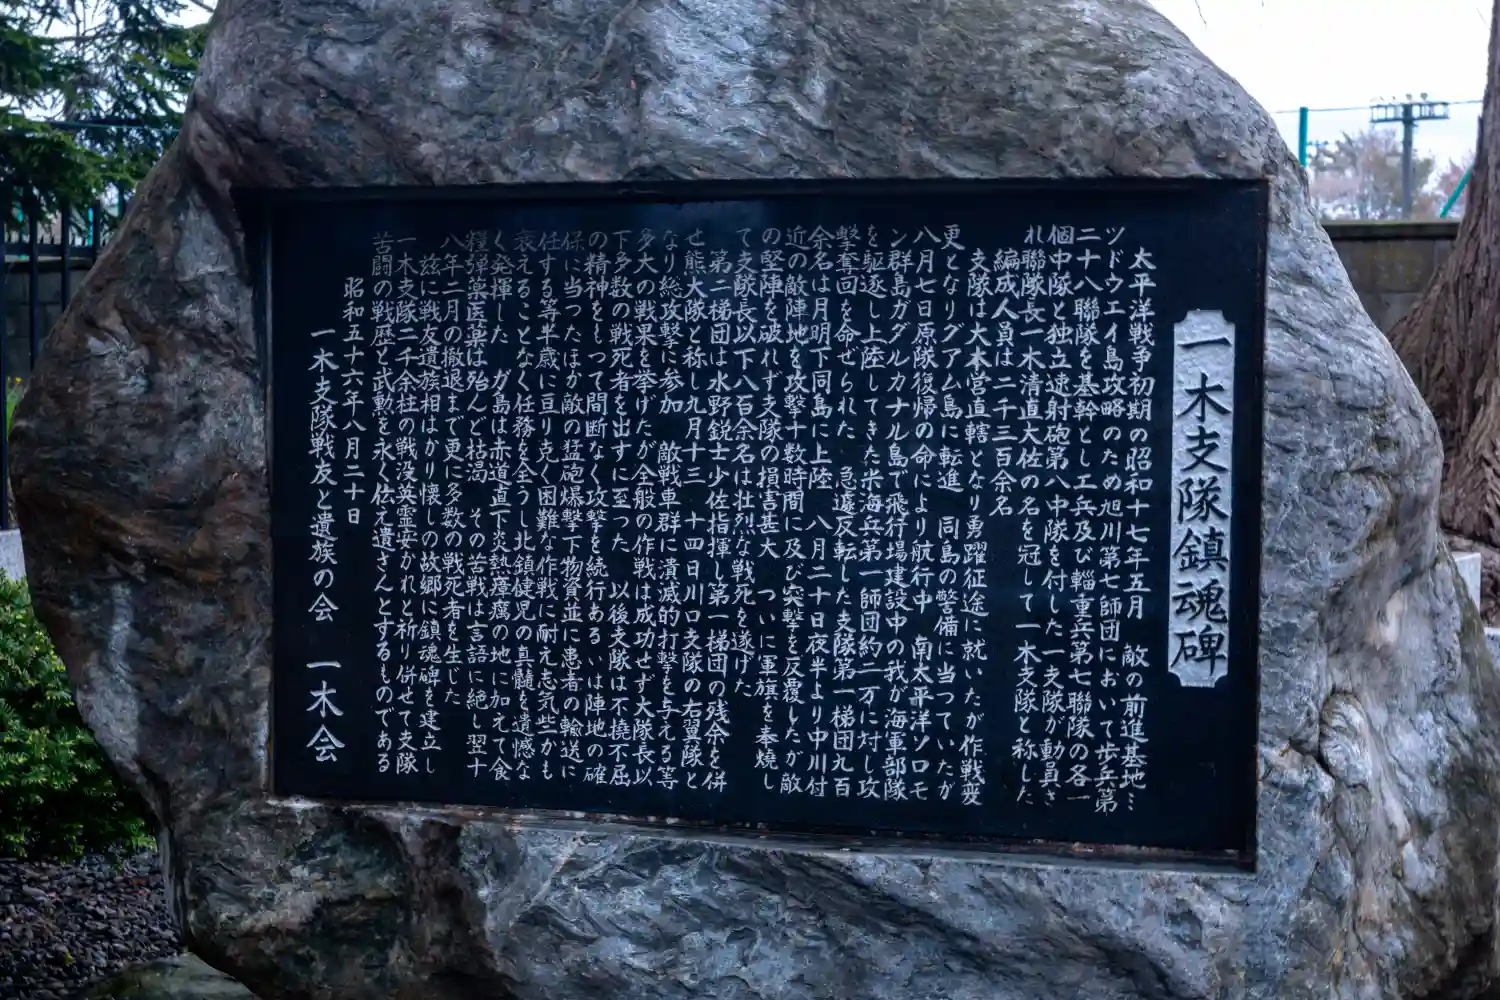 一木支隊鎮魂碑
太平洋戦争初期の昭和十七年五月　敵の前進基地…
ツドウエイ島攻略のため旭川第七師団において歩兵第
二十八聯隊を基幹とし工兵及び輜重兵第七聯隊の各一
個中隊と独立速射砲第八中隊を付した一支隊が動員さ
れ聯隊長一木清直大佐の名を冠して一木支隊と称した
編成人員は二千三百余名
支隊は大本営直轄となり勇躍征途に就いたが作戦変
更となりグアム島に転進　同島の警備に当つていたが
八月七日原隊復帰の命により航行中　南太平洋ソロモ
ン群島ガダルカナル島で飛行場建設中の我が海軍部隊
を駆逐し上陸してきた米海兵第一師団約二万に対し攻
撃奪回を命ぜられた　急遽反転した支隊第一梯団九百
余名は月明下同島に上陸　八月二十日夜半より中川付
近の敵陣地を攻撃十数時間に及び突撃を反覆したが敵
の堅陣を破れず支隊の損害甚大　ついに軍旗を奉焼し
て支隊長以下八百余名は壮烈な戦死を遂げた
第二梯団は水野鋭士少佐指揮し第一梯団の残余を併
せ熊大隊と称し九月十三　十四日川口支隊の右翼隊と
なり総攻撃に参加　敵戦車群に潰滅的打撃を与える等
多大の戦果を挙げたが全般の作戦は成功せず大隊長以
下多数の戦死者を出すに至った　以後支隊は不撓不屈
の精神をもつて間断なく攻撃を続行あるいは陣地の確
保に当つたほか敵の猛砲爆撃下物資並に患者の輸送に
任する等半歳に亘り克く困難な作戦に耐え志気些かも
衰えることなく任務を全うし北鎮健児の真髄を遺憾な
く発揮した　ガ島は赤道直下炎熱瘴癘の地に加えて食
糧弾薬医薬は殆んど枯渇　その苦戦は言語に絶し翌十
八年二月の撤退まで更に多数の戦死者を生じた
茲に戦友遺族相はかり懐しの故郷に鎮魂碑を建立し
一木支隊二千余柱の戦没英霊安かれと祈り併せて支隊
苦闘の戦歴と武勲を永く伝え遺さんとするものである
昭和五十六年八月二十日
一木支隊戦友と遺族の会　一木会